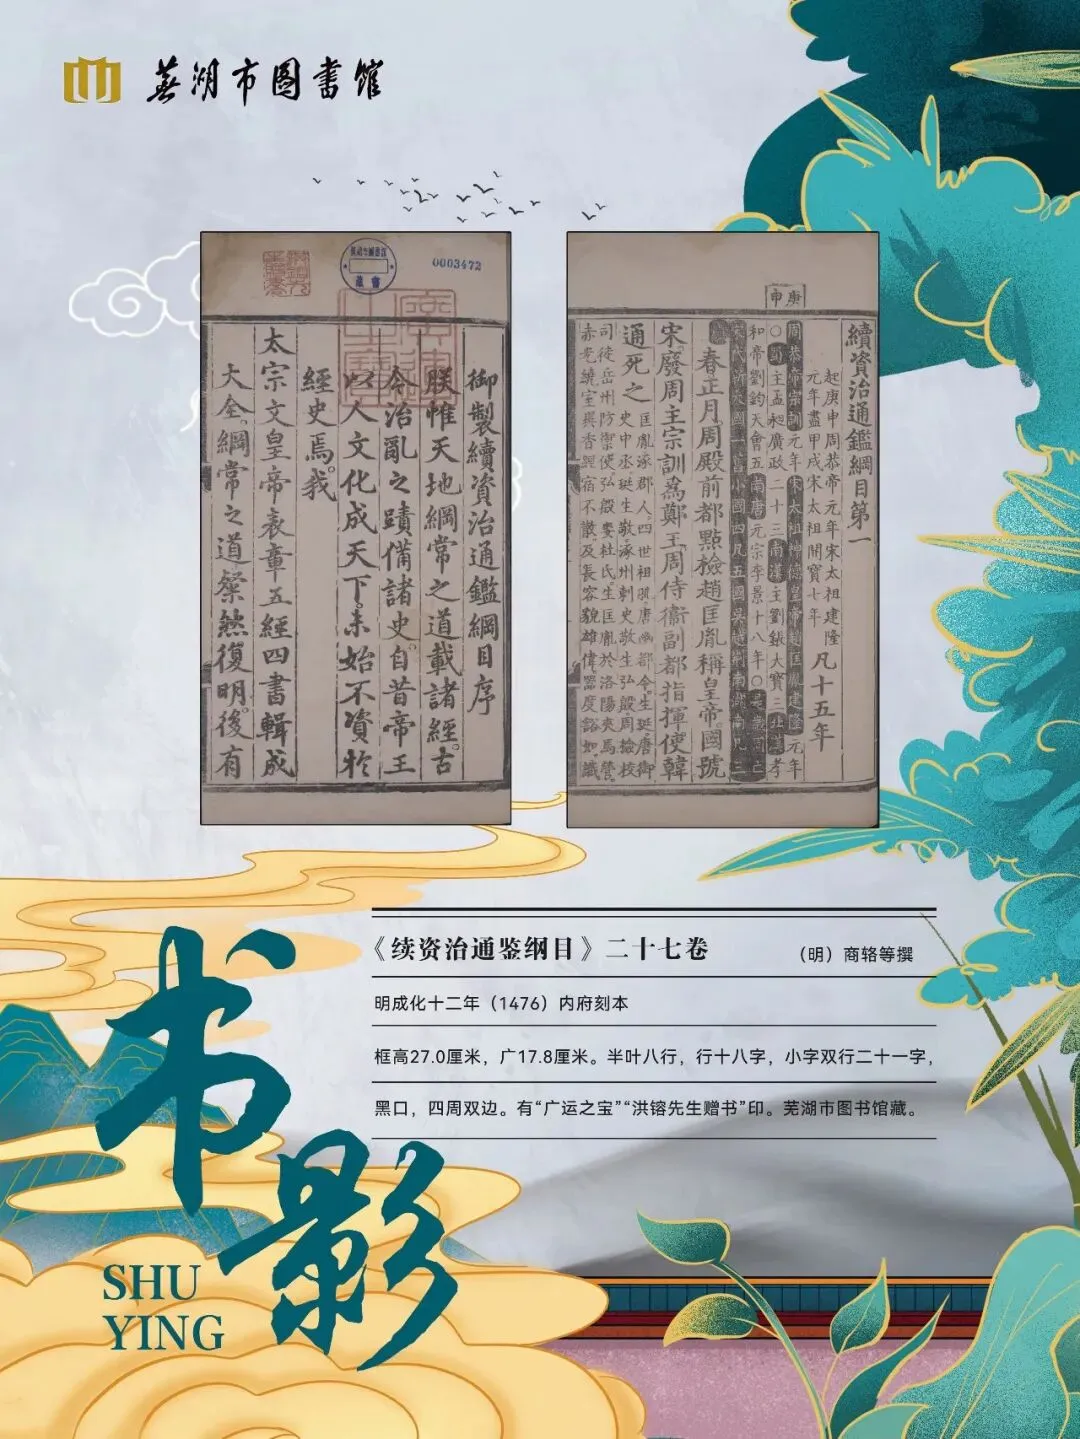 蕪湖市图書馆
0003472
御製續資治通鑑綱目序
朕惟天地綱常之道載諸經古
今治亂之蹟備諸史自昔帝王
以人文化成天下未始不資於
經史焉我
太宗文皇帝表章五經四書輯成
大全綱常之道粲然復明後有
庚申
續資治通鑑綱目第一
起庚申周恭帝元年宋太祖建隆
元年盡甲戌宋太祖開寶七年
凡十五年
春正月周殿前都點檢趙匡胤稱皇帝國號
宋廢周主宗訓為鄭王周侍衛副都指揮使韓
通死之
《续资治通鉴纲目》二十七卷 （明）商辂等撰
明成化十二年（1476）内府刻本
框高27.0厘米，广17.8厘米。半叶八行，行十八字，小字双行二十一字，
黑口，四周双边。有“广运之宝”“洪镕先生赠书”印。芜湖市图书馆藏。
书影
SHU
YING